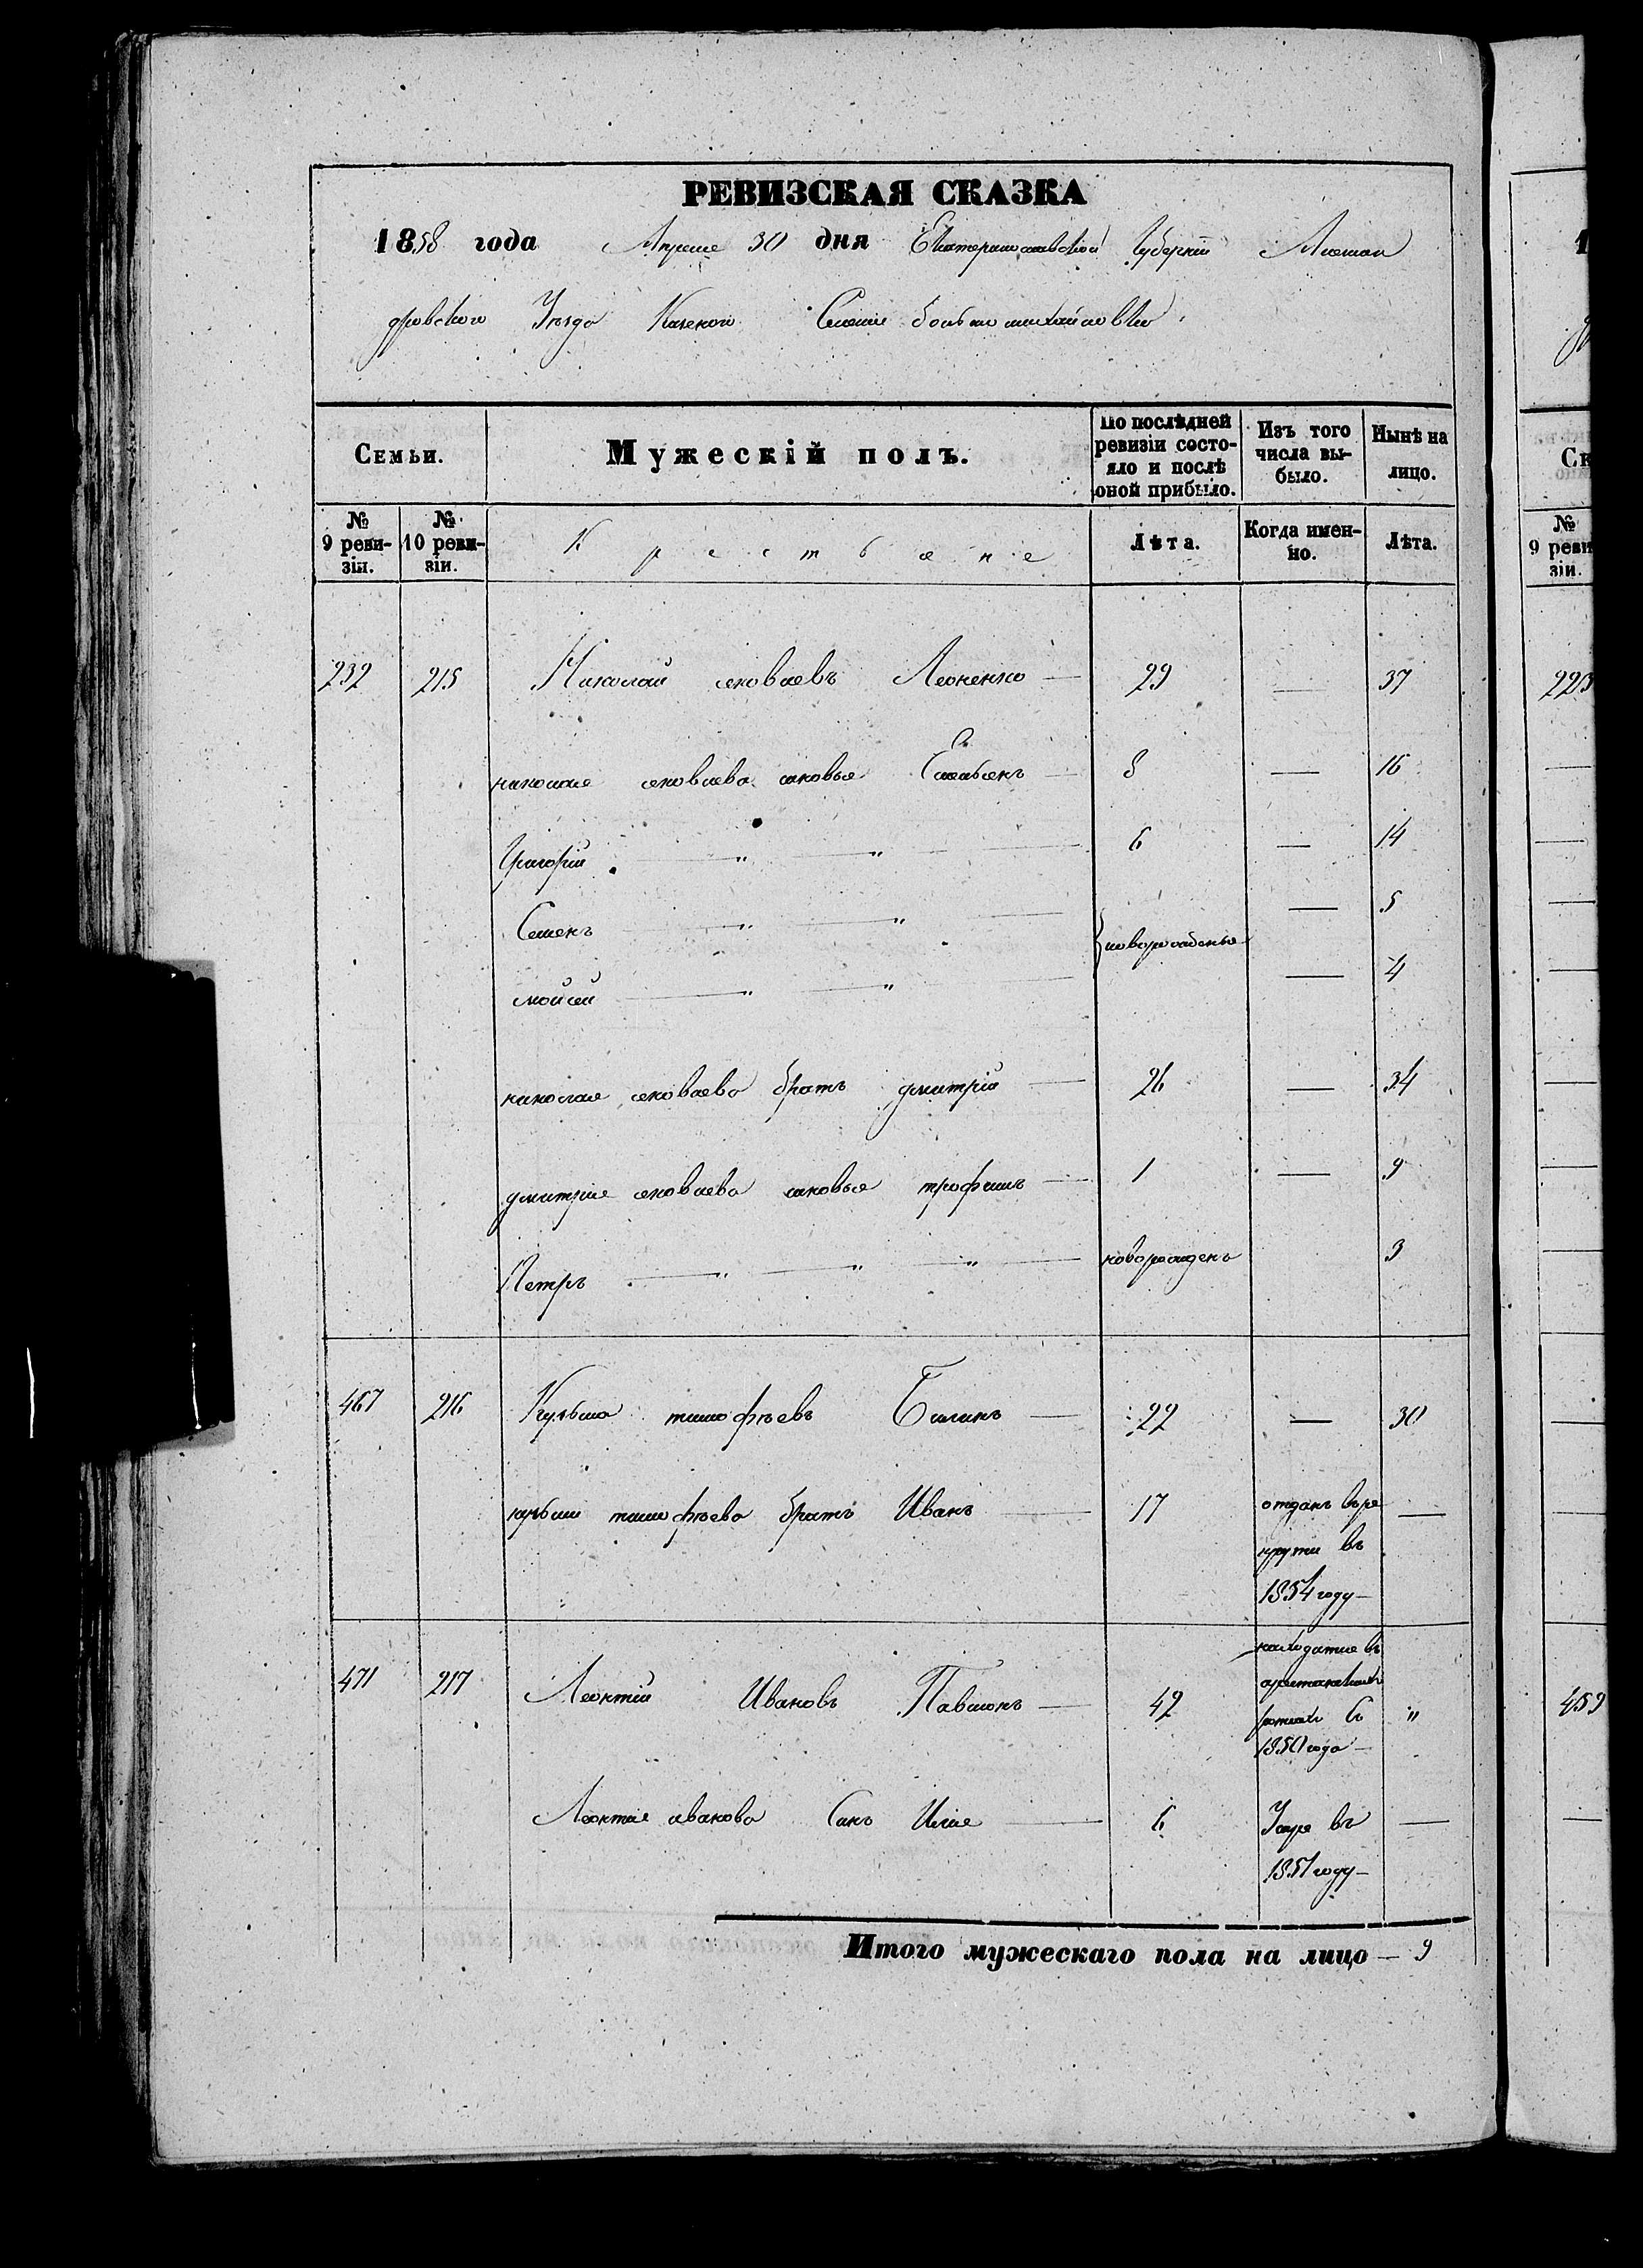 РЕВИЗСКАЯ СКАЗКА
1858 года Апреля 30 дня Екатеринославской Губернии Алексан
дровского Уезда Казеной Селения больше михайловки
Семьи. Мужескій полъ. По послѣдней ревизіи состояло и послѣ оной прибыло. Изъ того числа выбыло. Нынѣ на лицо.
№ 9 ревизіи. № 10 ревизіи. Крестьяне Лѣта. Когда именно. Лѣта. № 9 реви зіи.
232 215 Николай яковлевъ Леоненко — 29 — 37 223
николая яковлева сановья — 8 — 16
Григорій " " — 6 — 14
Семенъ " " — 5
{новорожденые
мойсей " " — 4
николая яковлева братъ дмитрій — 26 — 34
дмитрія яковлева сановья трофимъ — 1 — 9
Петръ " " " — новорожденъ 3
467 216 Кузьма тимофѣевъ Билинъ — 22 — 30
кузьми тимофѣева братъ Иванъ — 17 отданъ въ ре —
круты въ
1854 году —
находится въ
471 217 Леонтій Ивановъ Павлюкъ — 42 арестанскихъ
ротахъ съ " 459
1850 года —
Леонтія иванова Санъ Илия — 6 Умре въ —
1851 году —
Итого мужескаго пола на лицо — 9